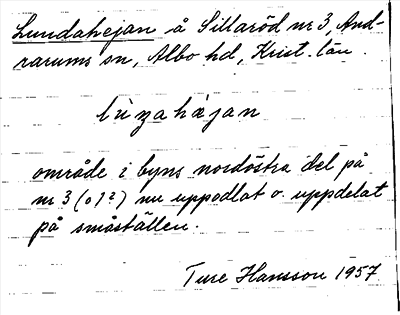 Lundahejan å Sillaröd nr 3, And-
rarums sn, Albo hd, Krist. län.
lùzahàjan
område i byns nordöstra del på
nr 3 (o 1?) nu uppodlat o. uppdelat
på småställen.
Ture Hansson 1957